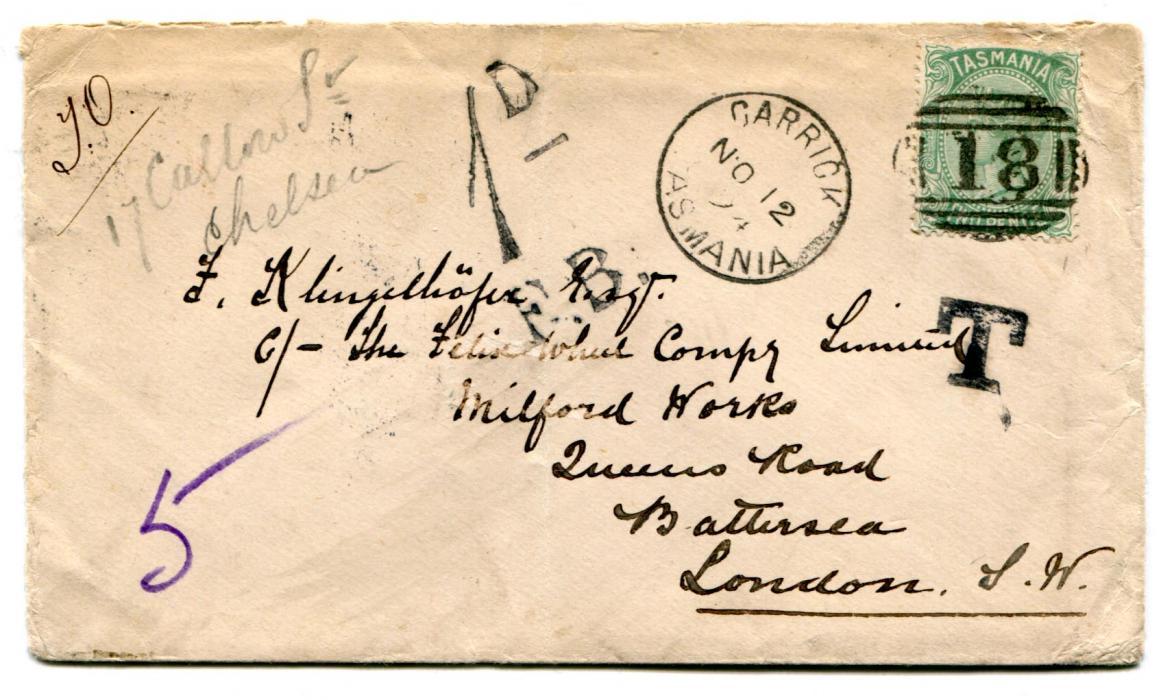 T.O.
17 Callow St
Chelsea
1 D
E.B.
CARRICK
NO 12
94
TASMANIA
TASMANIA
18
TWO PENCE
T
F. Klingelhöfer Esqr.
C/- The Felix Wheel Compy Limited
Milford Works
Queens Road
Battersea
London. S.W.
5